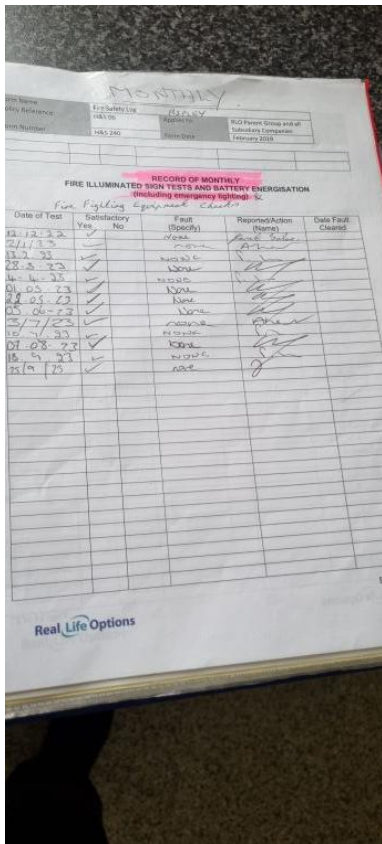 MONTHLY
Form Name Fire Safety Log
Policy Reference H&S 06 Applied to RLO Parent Group and all Subsidiary Companies
Form Number H&S 240 Issue Date February 2019
RECORD OF MONTHLY
FIRE ILLUMINATED SIGN TESTS AND BATTERY ENERGISATION
(including emergency lighting)
Fire Fighting Equipment Checks
Date of Test Satisfactory Fault Reported/Action Date Fault
Yes No (Specify) (Name) Cleared
12.12.22 ✓ None
2/1/23 ✓ none
13.2.23 ✓ NONE
28.3.23 ✓ None
4.4.23 ✓ NONE
01.05.23 ✓ None
22.05.23 ✓ None
05.06-23 ✓ None
3/7/23 ✓ none
10/7/23 ✓ NONE
07.08.23 ✓ None
18.9.23 ✓ NONE
25/9/25 ✓ none
Real Life Options